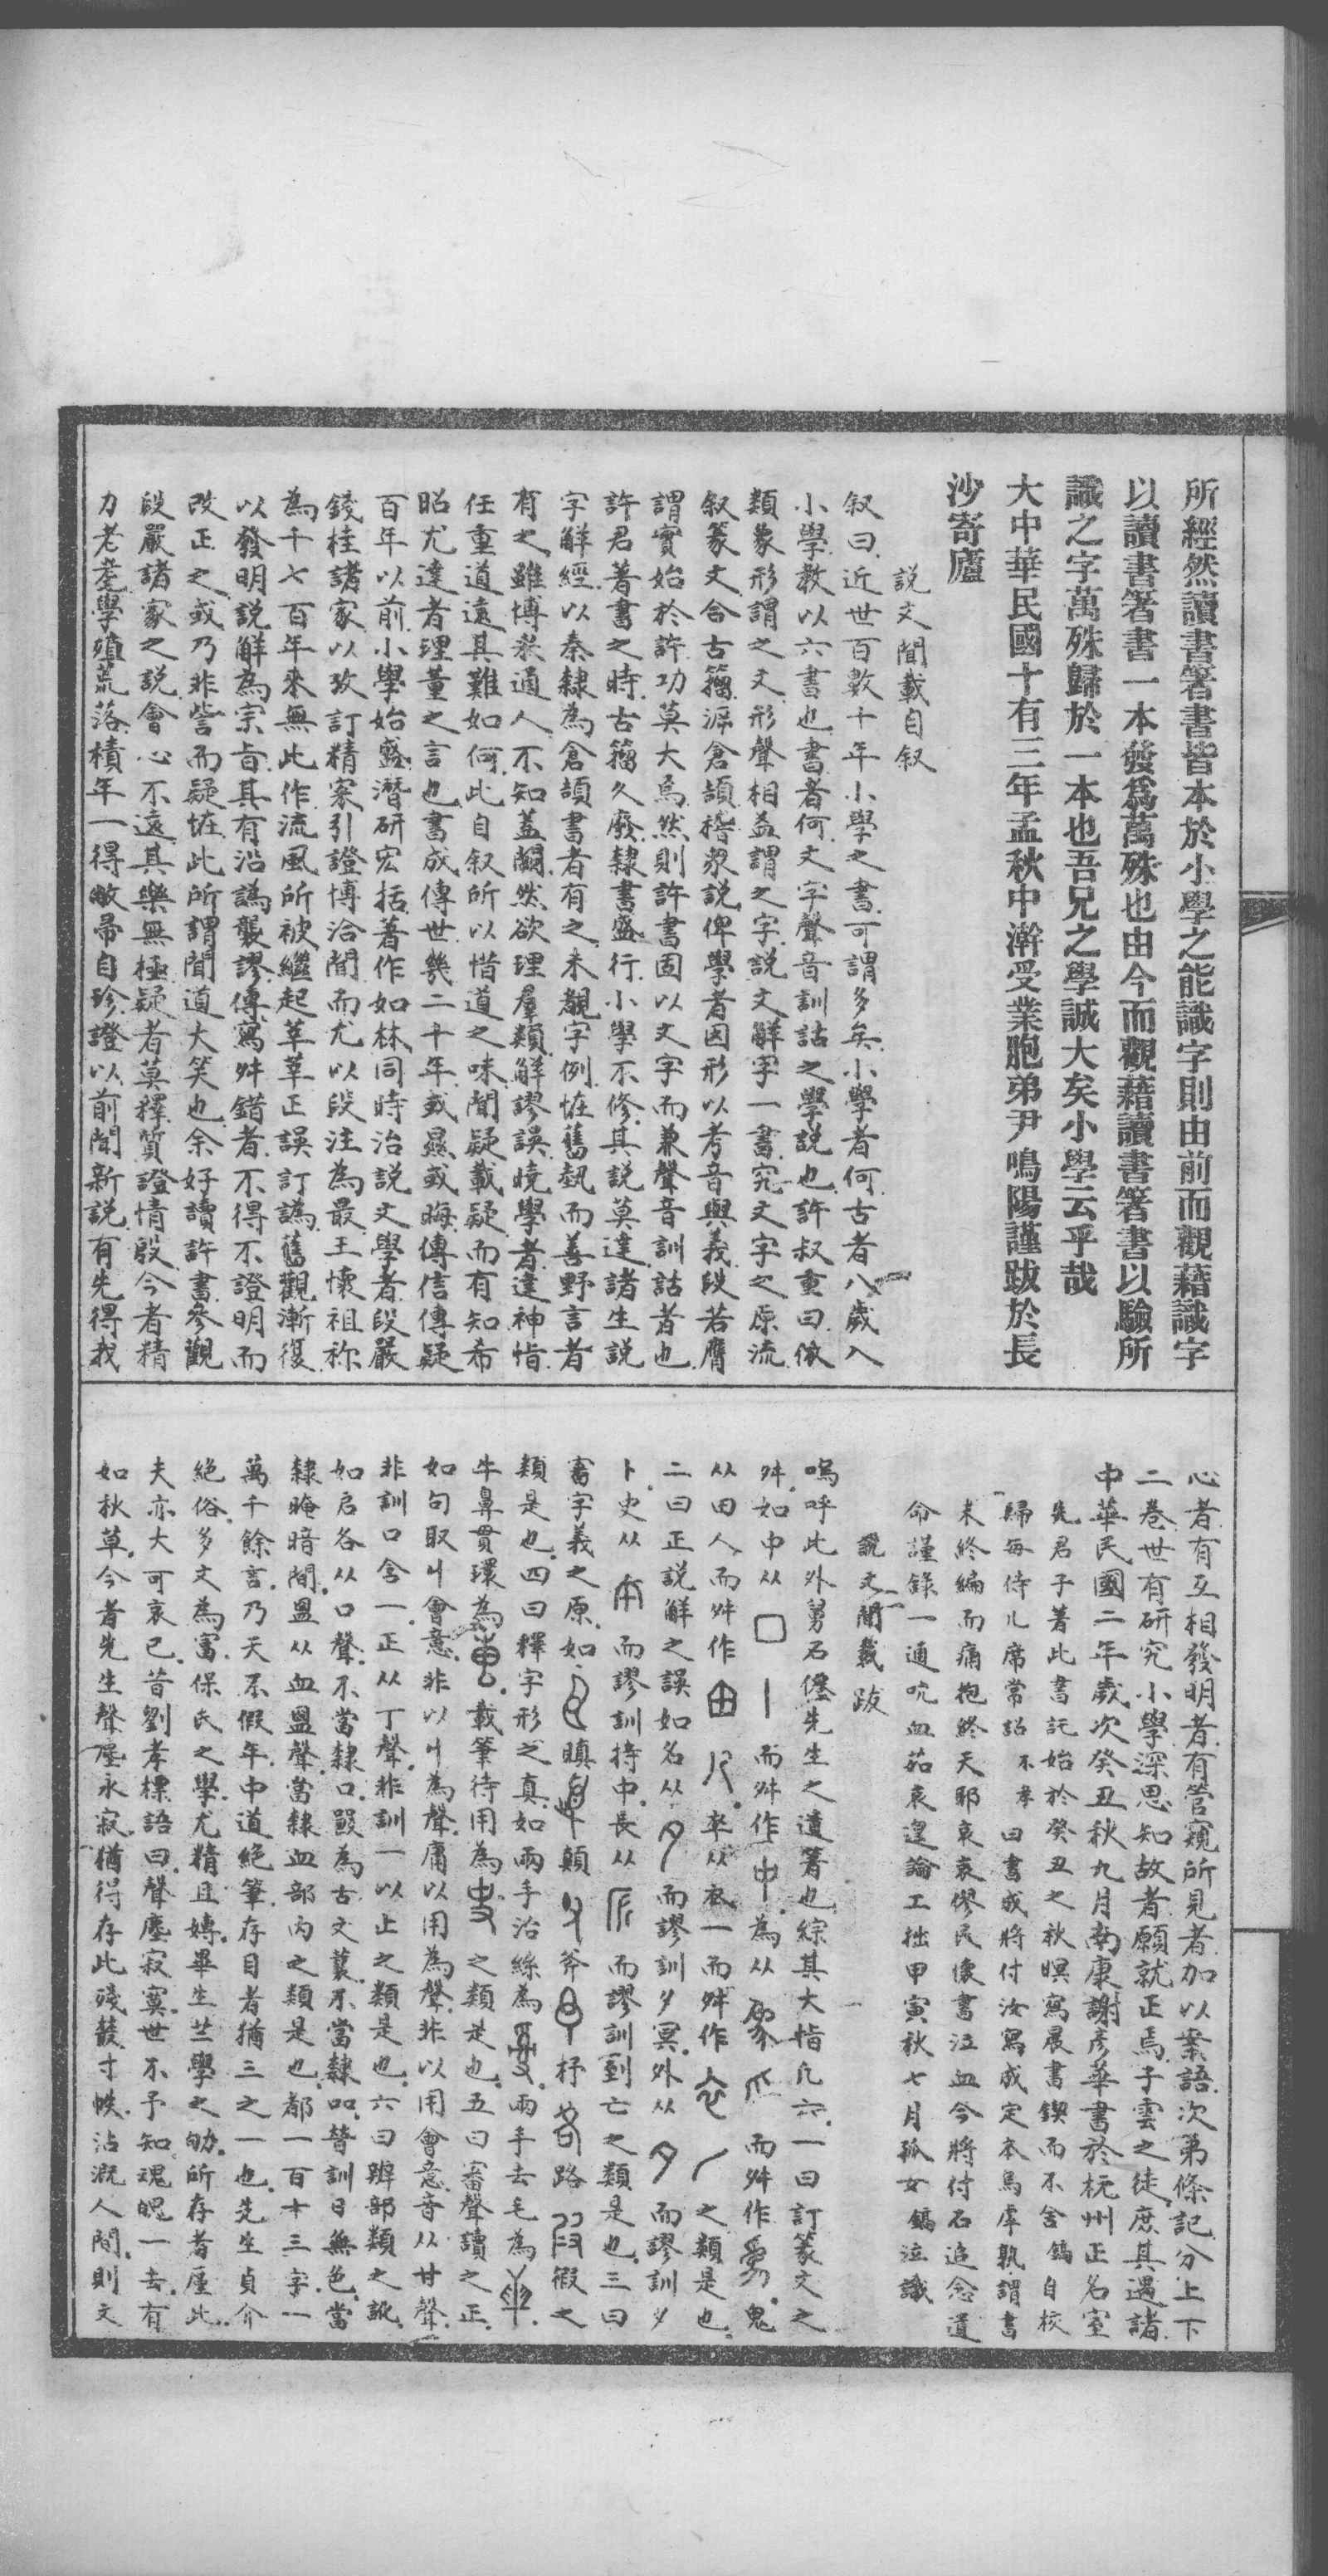 所經然讀書箸書皆本於小學之能識字則由前而觀藉識字
以讀書箸書一本發爲萬殊也由今而觀藉讀書箸書以驗所
識之字萬殊歸於一本也吾兄之學誠大矣小學云乎哉
大中華民國十有三年孟秋中澣受業胞弟尹鳴陽謹跋於長
沙寄廬
說文聞載自叙
叙曰近世百數十年小學之書可謂多矣小學者何古者八歲入
小學教以六書也書者何文字聲音訓詁之學說也許叔重曰依
類象形謂之文形聲相益謂之字說文解字一書究文字之原流
叙篆文合古籀溯倉頡稽衆說俾學者因形以考音與義段若膺
謂實始於許功莫大焉然則許書固以文字而兼聲音訓詁者也
許君著書之時古籀久廢隸書盛行小學不修其說莫達諸生說
字解經以秦隸為倉頡書者有之未覩字例恠舊埶而善野言者
有之雖博采通人不知蓋闕然欲理羣類解謬誤曉學者達神恉
任重道遠其難如何此自叙所以惜道之味聞疑載疑而有知希
昭尤達者理董之言也書成傳世幾二千年或顯或晦傳信傳疑
百年以前小學始盛潛研宏括著作如林同時治說文學者段嚴
錢桂諸家以攷訂精寀引證博洽聞而尤以段注為最王懷祖称
為千七百年來無此作流風所被繼起莘莘正誤訂譌舊觀漸復
以發明說解為宗旨其有沿譌襲謬傳寫舛錯者不得不證明而
改正之或乃非訾而疑恠此所謂聞道大笑也余好讀許書參觀
段嚴諸家之說會心不遠其樂無極疑者莫釋質證情殷今者精
力老耄學殖荒落積年一得敝帚自珍證以前聞新說有先得我
心者有互相發明者有管窺所見者加以案語次第條記分上下
二卷世有研究小學深思知故者願就正焉子雲之徒庶其遇諸
中華民國二年歲次癸丑秋九月南康謝彥華書於杭州正名室
先君子著此書託始於癸丑之秋暝寫晨書鍥而不舍鎬自校
歸每侍几席常詔不孝曰書成將付汝寫成定本烏虖孰謂書
未終編而痛抱終天耶哀哀僇民懷書泣血今將付石追念遺
命謹錄一通吮血茹哀遑論工拙甲寅秋七月孤女鎬泣識
說文聞載跋
嗚呼此外舅石僊先生之遺箸也綜其大恉凡六一曰訂篆文之
舛如中从囗丨而舛作中為从而舛作鬼
从田人而舛作率从衣一而舛作之類是也
二曰正說解之誤如名从夕而謬訓夕冥外从夕而謬訓夕
卜史从而謬訓持中長从而謬訓到亡之類是也三曰
字義之原如瞋顛斧抒路假之
類是也四曰釋字形之真如兩手治絲為兩手去毛為
牛鼻貫環為載筆待用為之類是也五曰審聲讀之正
如句取丩會意非以丩為聲庸以用為聲非以用會意音从甘聲
非訓口含一正从丁聲非訓一以止之類是也六曰辨部類之訛
如启各从口聲不當隸口㱾為古文不當隸吅瞀訓日無色當
隸晻暗間盟从血盟聲當隸血部內之類是也都一百十三字一
萬千餘言乃天不假年中道絕筆存目者猶三之一也先生貞介
絕俗多文為富保氏之學尤精且專畢生學之劬所存者厪此
夫亦大可哀已昔劉孝標語曰聲塵寂寞世不予知魂魄一去有
如秋草今者先生聲塵永寂猶得存此殘叢寸帙沾溉人間則文